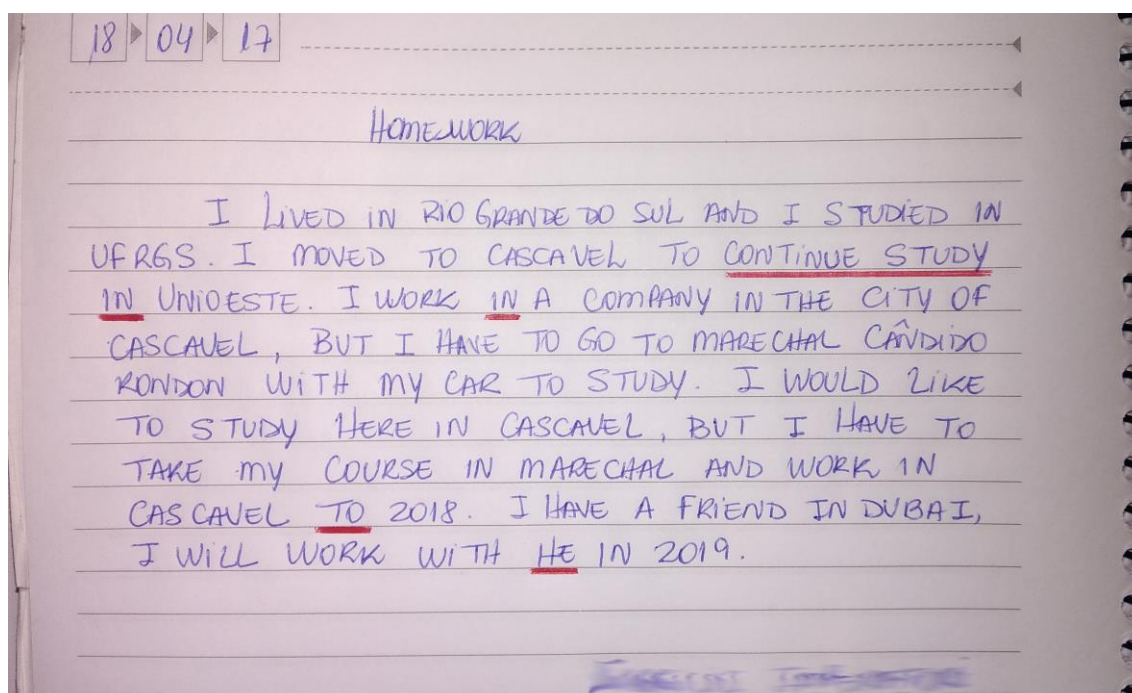 18 04 17
HOMEWORK
I LIVED IN RIO GRANDE DO SUL AND I STUDIED IN
UFRGS. I MOVED TO CASCAVEL TO CONTINUE STUDY
IN UNIOESTE. I WORK IN A COMPANY IN THE CITY OF
CASCAVEL, BUT I HAVE TO GO TO MARECHAL CÂNDIDO
RONDON WITH MY CAR TO STUDY. I WOULD LIKE
TO STUDY HERE IN CASCAVEL, BUT I HAVE TO
TAKE MY COURSE IN MARECHAL AND WORK IN
CASCAVEL TO 2018. I HAVE A FRIEND IN DUBAI,
I WILL WORK WITH HE IN 2019.